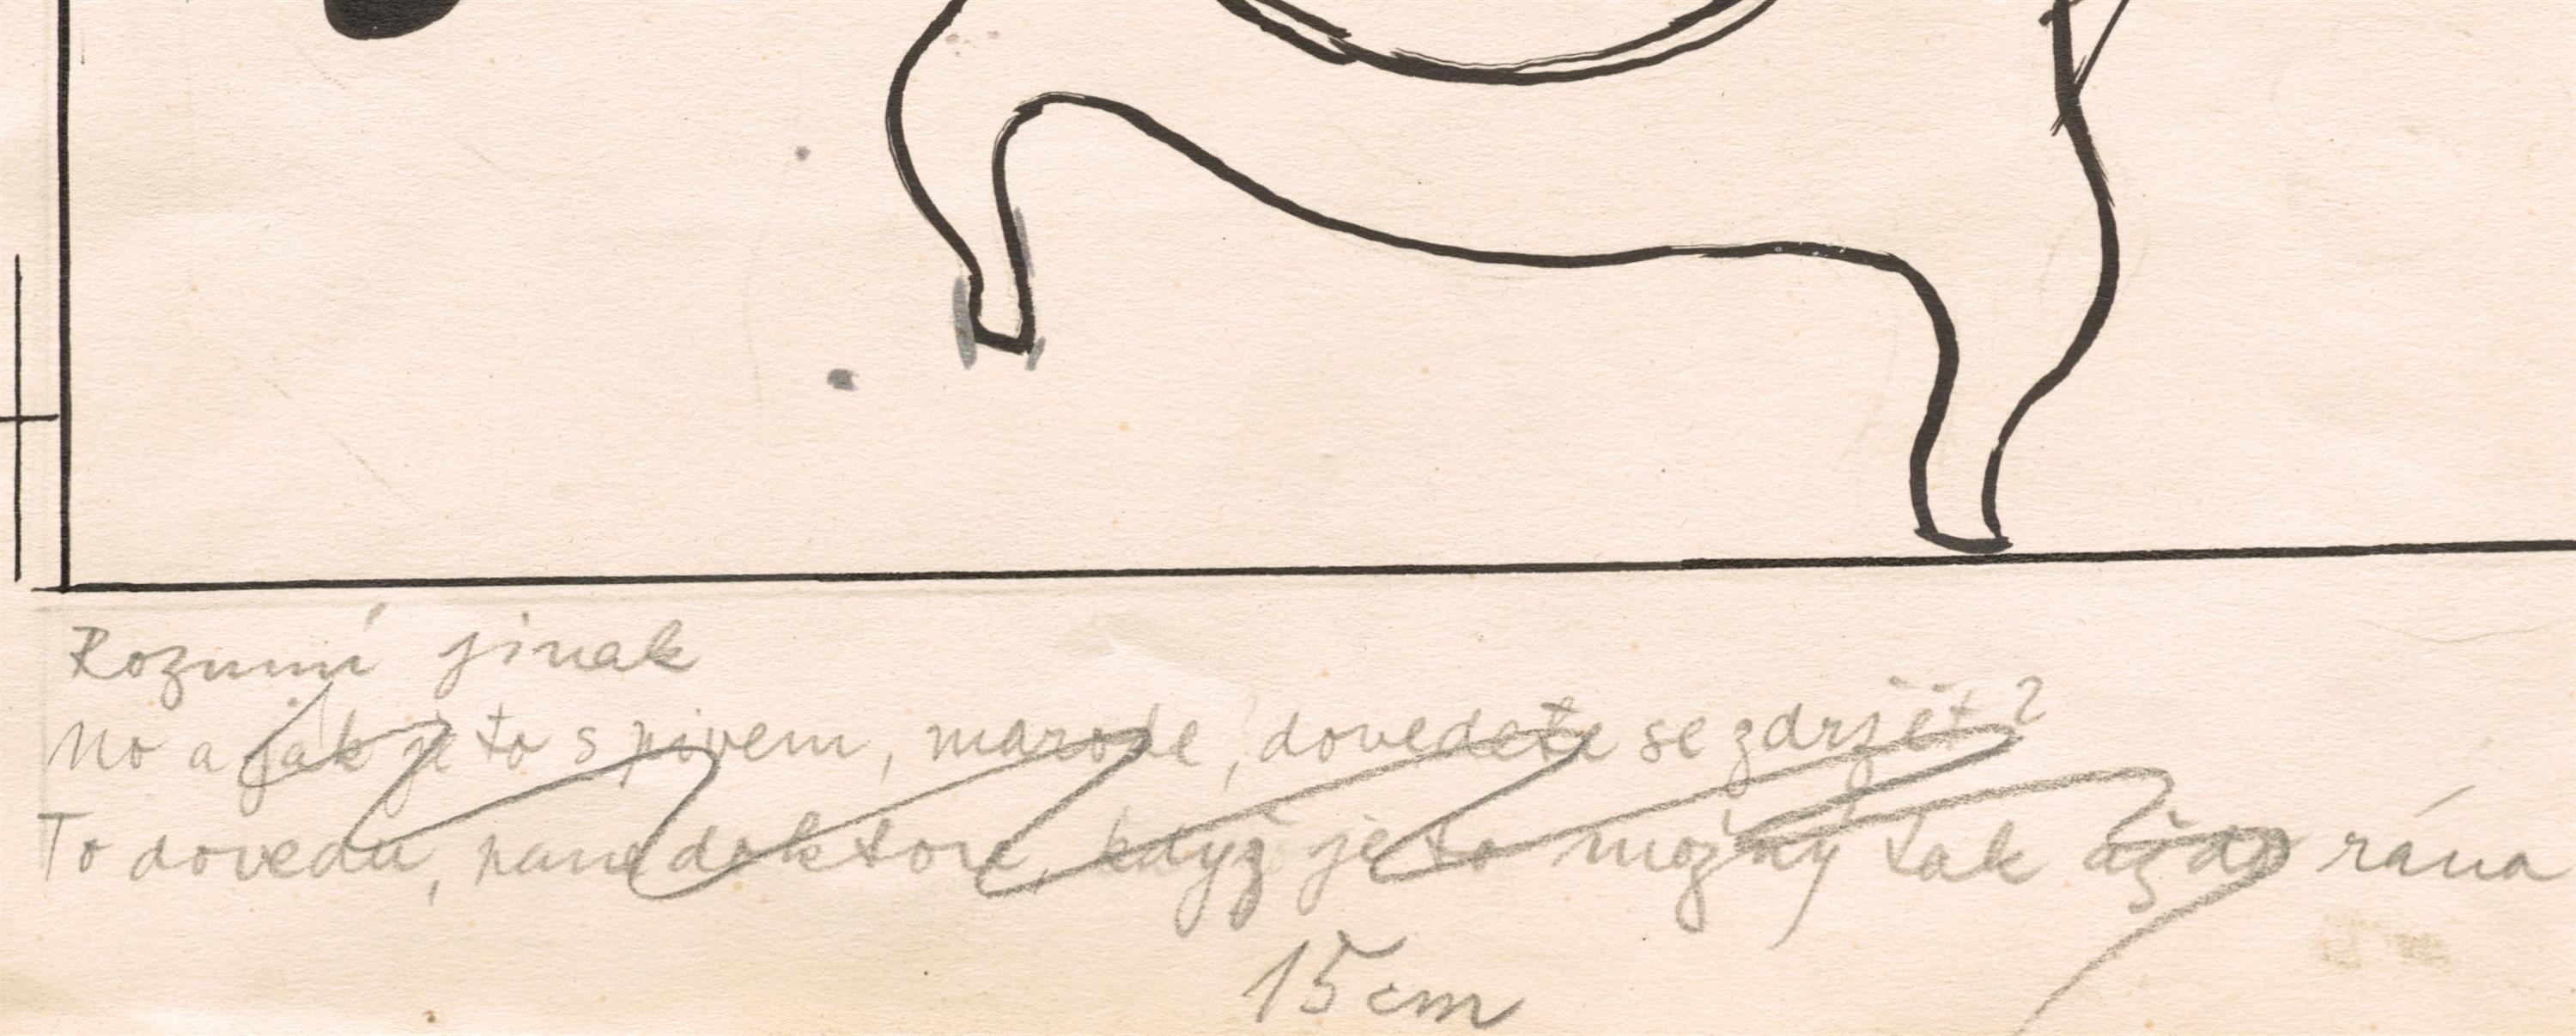 Rozumí jinak
No a jak je to s pivem, marode, dovedete se zdržet?
To dovedu, pane doktore, když je to možný tak až do rána
15 cm